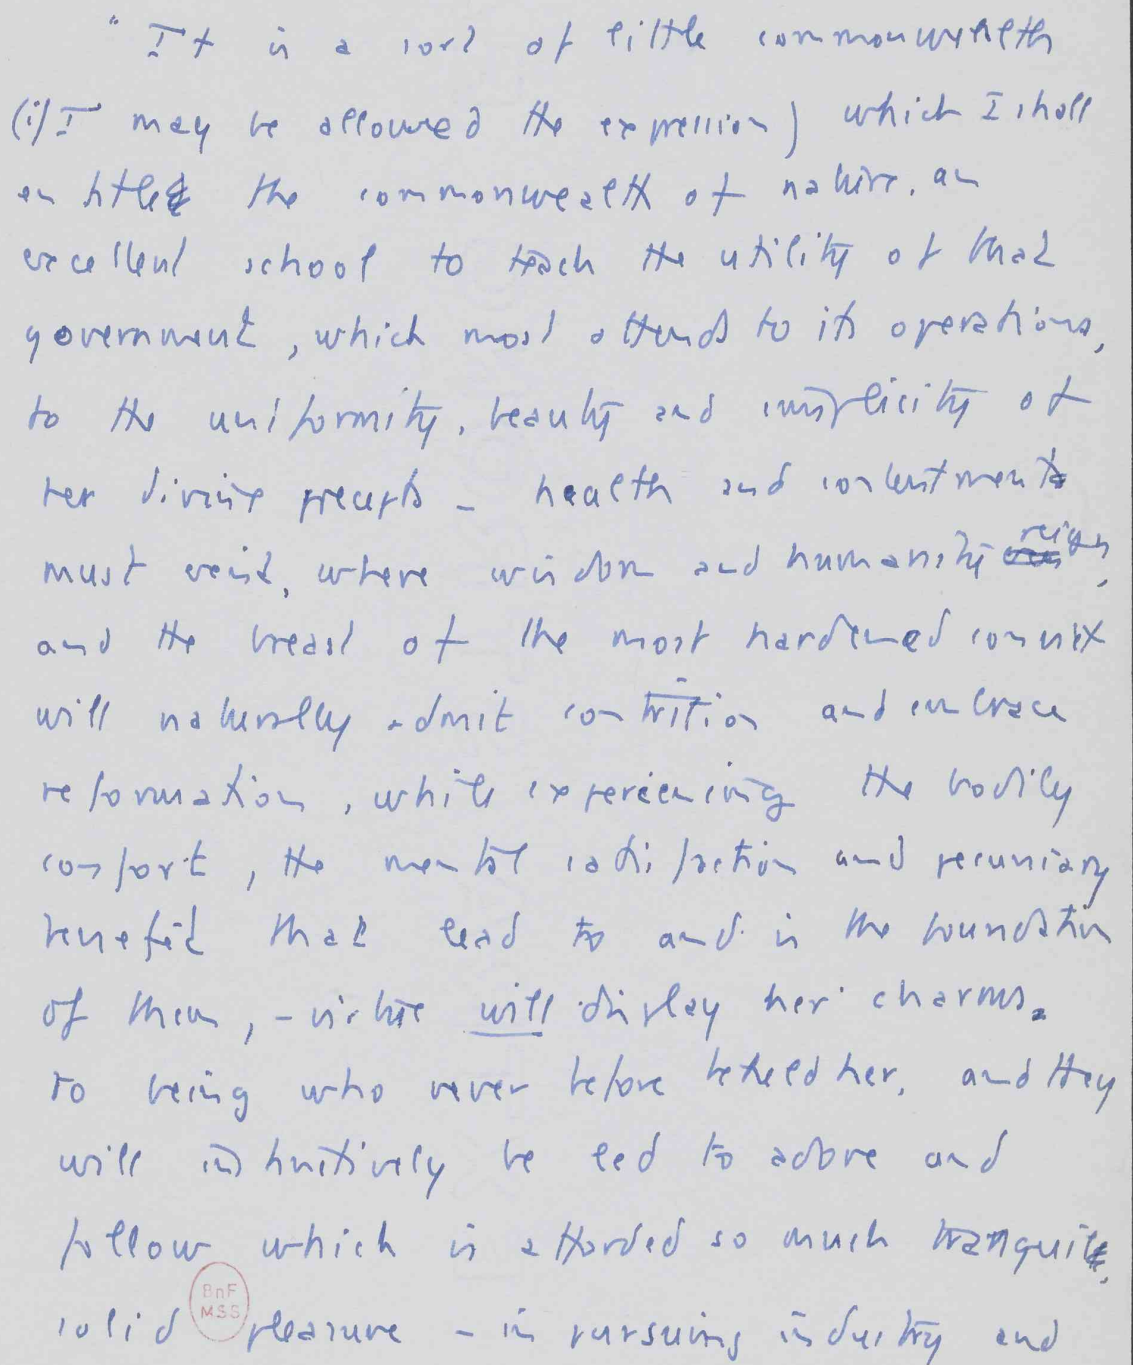 " It is a sort of little commonwealth
(if I may be allowed the expression) which I shall
entitle the commonwealth of nature, an
excellent school to teach the utility of that
government, which most attends to its operations,
to the uniformity, beauty and simplicity of
her divine precepts - health and contentment
must exist, where wisdom and humanity reign,
and the breast of the most hardened convict
will naturally admit contrition and embrace
reformation, while experiencing the bodily
comfort, the mental satisfaction and pecuniary
benefit that lead to and is the foundation
of them, - virtue will display her charms.
to being who never before beheld her, and they
will instinctively be led to adore and
follow which is afforded so much tranquil,
solid pleasure - in pursuing industry and
BnF
MSS